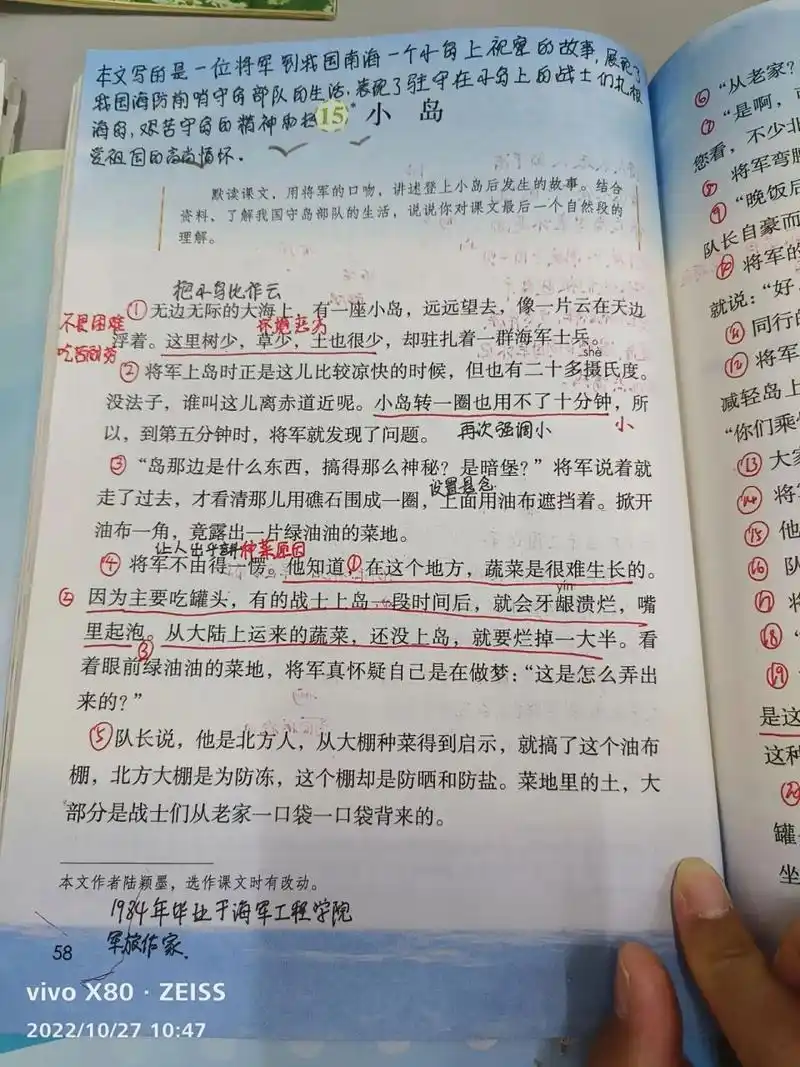 本文写的是一位将军到我国南海一个小岛上视察的故事,展现了
我国海防前哨守岛部队的生活,表现了驻守在小岛上的战士们扎根
海岛,艰苦守岛的精神和
爱祖国的高尚情怀。
15* 小 岛
默读课文,用将军的口吻,讲述登上小岛后发生的故事。结合
资料,了解我国守岛部队的生活,说说你对课文最后一个自然段的
理解。
把小岛比作云
①无边无际的大海上,有一座小岛,远远望去,像一片云在天边
不畏困难
环境恶劣
浮着。这里树少,草少,土也很少,却驻扎着一群海军士兵。
吃苦耐劳
shè
②将军上岛时正是这儿比较凉快的时候,但也有二十多摄氏度。
没法子,谁叫这儿离赤道近呢。小岛转一圈也用不了十分钟,所
以,到第五分钟时,将军就发现了问题。
再次强调小
小
③“岛那边是什么东西,搞得那么神秘?是暗堡?”将军说着就
设置悬念
走了过去,才看清那儿用礁石围成一圈,上面用油布遮挡着。掀开
油布一角,竟露出一片绿油油的菜地。
让人出乎意料
种菜原因
④将军不由得一愣。他知道,①在这个地方,蔬菜是很难生长的。
yín
②因为主要吃罐头,有的战士上岛一段时间后,就会牙龈溃烂,嘴
里起泡。③从大陆上运来的蔬菜,还没上岛,就要烂掉一大半。看
着眼前绿油油的菜地,将军真怀疑自己是在做梦:“这是怎么弄出
来的?”
⑤队长说,他是北方人,从大棚种菜得到启示,就搞了这个油布
棚,北方大棚是为防冻,这个棚却是防晒和防盐。菜地里的土,大
部分是战士们从老家一口袋一口袋背来的。
本文作者陆颖墨,选作课文时有改动。
1984年毕业于海军工程学院
军旅作家.
58
vivo X80 · ZEISS
2022/10/27 10:47
⑥“从老家?
⑦“是啊,
您看,不少北
⑧将军弯腰
⑨“晚饭后
队长自豪而
⑩将军的
就说:“好,
⑪同行的
⑫将军
减轻岛上
“你们乘
⑬大家
⑭将
⑮他
⑯队
⑰将
⑱“
⑲
是这
这种
罐
坐